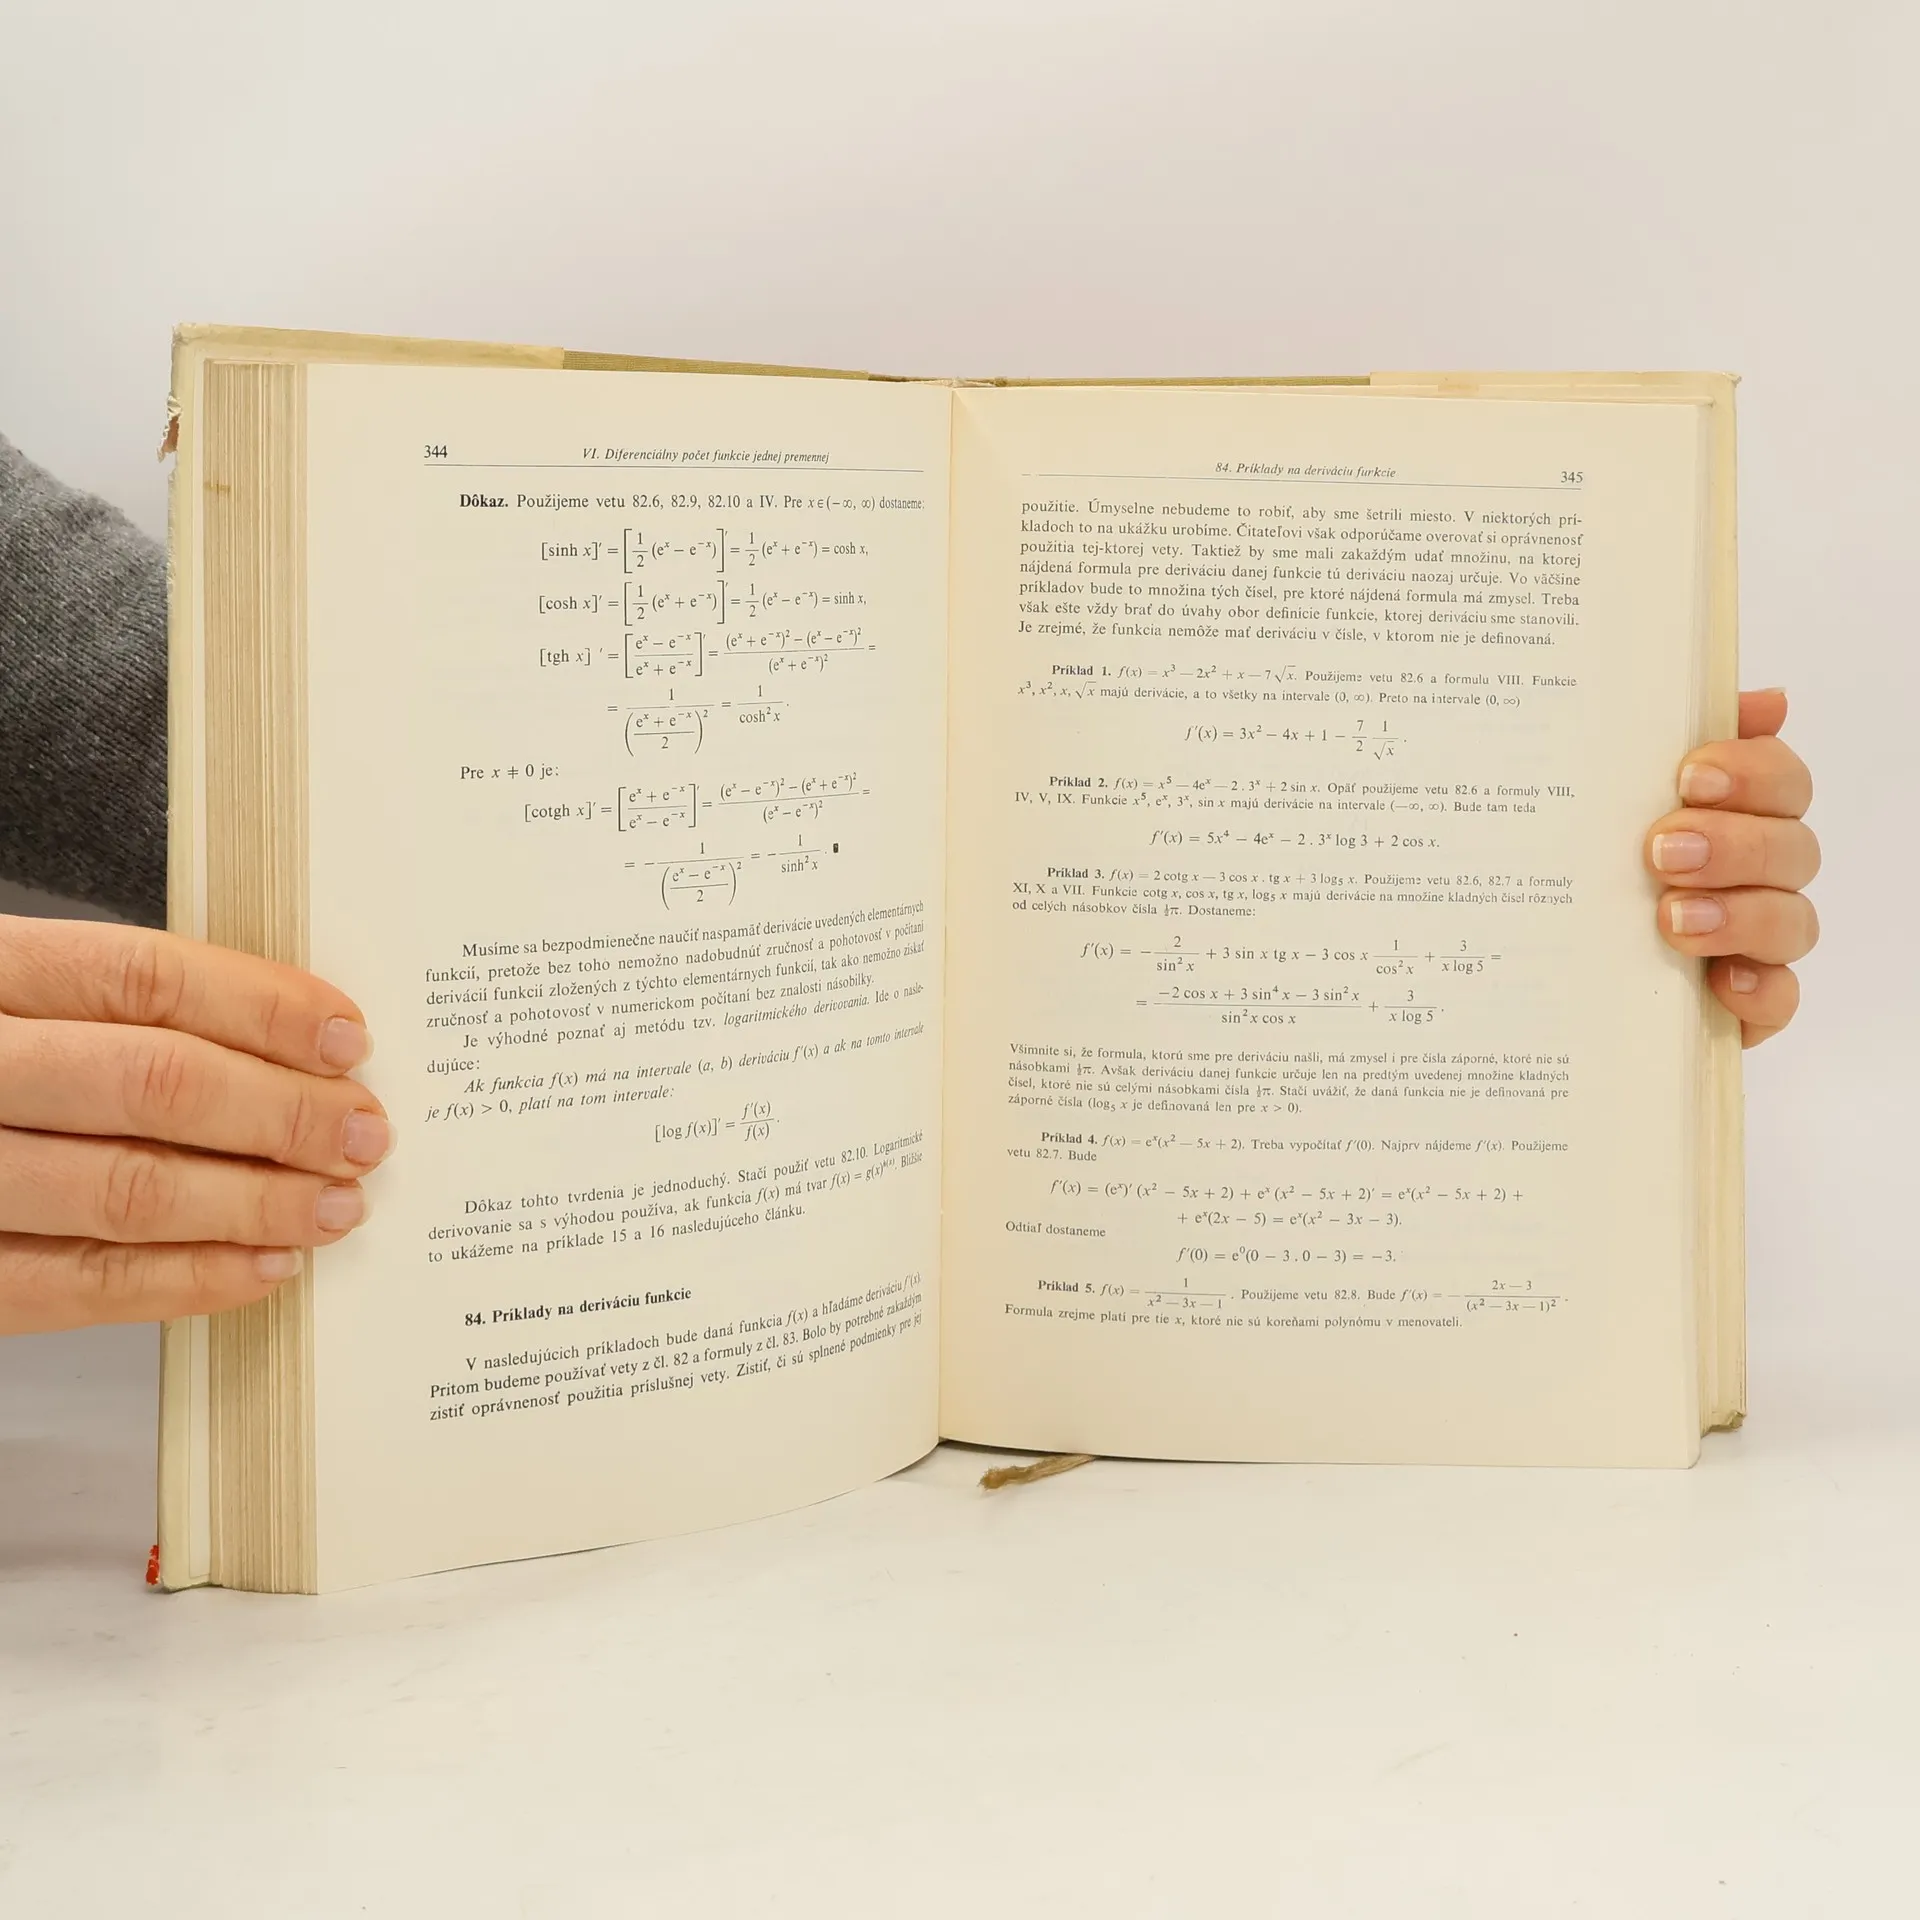 344
VI. Diferenciálny počet funkcie jednej premennej
Dôkaz. Použijeme vetu 82.6, 82.9, 82.10 a IV. Pre x ∈ (−∞, ∞) dostaneme:
[sinh x]′ = [1/2 (eˣ − e⁻ˣ)]′ = 1/2 (eˣ + e⁻ˣ) = cosh x,
[cosh x]′ = [1/2 (eˣ + e⁻ˣ)]′ = 1/2 (eˣ − e⁻ˣ) = sinh x,
[tgh x] ′ = [(eˣ − e⁻ˣ)/(eˣ + e⁻ˣ)]′ = ((eˣ + e⁻ˣ)² − (eˣ − e⁻ˣ)²)/(eˣ + e⁻ˣ)² =
= 1/((eˣ + e⁻ˣ)/2)² = 1/cosh² x .
Pre x ≠ 0 je:
[cotgh x]′ = [(eˣ + e⁻ˣ)/(eˣ − e⁻ˣ)]′ = ((eˣ − e⁻ˣ)² − (eˣ + e⁻ˣ)²)/(eˣ − e⁻ˣ)² =
= − 1/((eˣ − e⁻ˣ)/2)² = − 1/sinh² x . ∎
Musíme sa bezpodmienečne naučiť naspamäť derivácie uvedených elementárnych
funkcií, pretože bez toho nemožno nadobudnúť zručnosť a pohotovosť v počítaní
derivácií funkcií zložených z týchto elementárnych funkcií, tak ako nemožno získať
zručnosť a pohotovosť v numerickom počítaní bez znalosti násobilky.
Je výhodné poznať aj metódu tzv. logaritmického derivovania. Ide o nasle-
dujúce:
Ak funkcia f(x) má na intervale (a, b) deriváciu f′(x) a ak na tomto intervale
je f(x) > 0, platí na tom intervale:
[log f(x)]′ = f′(x)/f(x) .
Dôkaz tohto tvrdenia je jednoduchý. Stačí použiť vetu 82.10. Logaritmické
derivovanie sa s výhodou používa, ak funkcia f(x) má tvar f(x) = g(x)ʰ⁽ˣ⁾. Bližšie
to ukážeme na príklade 15 a 16 nasledujúceho článku.
84. Príklady na deriváciu funkcie
V nasledujúcich príkladoch bude daná funkcia f(x) a hľadáme deriváciu f′(x).
Pritom budeme používať vety z čl. 82 a formuly z čl. 83. Bolo by potrebné zakaždým
zistiť oprávnenosť použitia príslušnej vety. Zistiť, či sú splnené podmienky pre jej
84. Príklady na deriváciu funkcie
345
použitie. Úmyselne nebudeme to robiť, aby sme šetrili miesto. V niektorých prí-
kladoch to na ukážku urobíme. Čitateľovi však odporúčame overovať si oprávnenosť
použitia tej-ktorej vety. Taktiež by sme mali zakaždým udať množinu, na ktorej
nájdená formula pre deriváciu danej funkcie tú deriváciu naozaj určuje. Vo väčšine
príkladov bude to množina tých čísel, pre ktoré nájdená formula má zmysel. Treba
však ešte vždy brať do úvahy obor definície funkcie, ktorej deriváciu sme stanovili.
Je zrejmé, že funkcia nemôže mať deriváciu v čísle, v ktorom nie je definovaná.
Príklad 1. f(x) = x³ — 2x² + x — 7 √x. Použijeme vetu 82.6 a formulu VIII. Funkcie
x³, x², x, √x majú derivácie, a to všetky na intervale (0, ∞). Preto na intervale (0, ∞)
f′(x) = 3x² − 4x + 1 − 7/2 1/√x .
Príklad 2. f(x) = x⁵ — 4eˣ — 2 . 3ˣ + 2 sin x. Opäť použijeme vetu 82.6 a formuly VIII,
IV, V, IX. Funkcie x⁵, eˣ, 3ˣ, sin x majú derivácie na intervale (—∞, ∞). Bude tam teda
f′(x) = 5x⁴ − 4eˣ − 2 . 3ˣ log 3 + 2 cos x.
Príklad 3. f(x) = 2 cotg x — 3 cos x . tg x + 3 log₅ x. Použijeme vetu 82.6, 82.7 a formuly
XI, X a VII. Funkcie cotg x, cos x, tg x, log₅ x majú derivácie na množine kladných čísel rôznych
od celých násobkov čísla ½π. Dostaneme:
f′(x) = − 2/sin² x + 3 sin x tg x − 3 cos x 1/cos² x + 3/(x log 5) =
= (−2 cos x + 3 sin⁴ x − 3 sin² x)/(sin² x cos x) + 3/(x log 5) .
Všimnite si, že formula, ktorú sme pre deriváciu našli, má zmysel i pre čísla záporné, ktoré nie sú
násobkami ½π. Avšak deriváciu danej funkcie určuje len na predtým uvedenej množine kladných
čísel, ktoré nie sú celými násobkami čísla ½π. Stačí uvážiť, že daná funkcia nie je definovaná pre
záporné čísla (log₅ x je definovaná len pre x > 0).
Príklad 4. f(x) = eˣ(x² — 5x + 2). Treba vypočítať f′(0). Najprv nájdeme f′(x). Použijeme
vetu 82.7. Bude
f′(x) = (eˣ)′ (x² − 5x + 2) + eˣ (x² − 5x + 2)′ = eˣ(x² − 5x + 2) +
+ eˣ(2x − 5) = eˣ(x² − 3x − 3).
Odtiaľ dostaneme
f′(0) = e⁰(0 − 3 . 0 − 3) = −3.
Príklad 5. f(x) = 1/(x² — 3x — 1) . Použijeme vetu 82.8. Bude f′(x) = — (2x — 3)/(x² — 3x — 1)² .
Formula zrejme platí pre tie x, ktoré nie sú koreňami polynómu v menovateli.